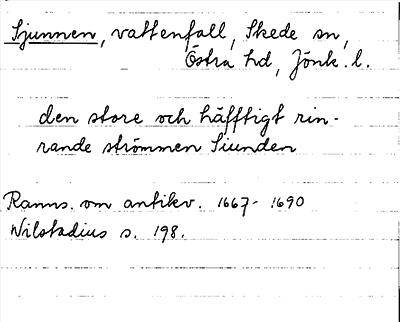 Sjunnen, vattenfall, Skede sn,
Östra hd, Jönk. l.
den store och häfftigt rin-
rande strömmen Siunden
Ranns. om antikv. 1667-1690
Wilstadius s. 198.